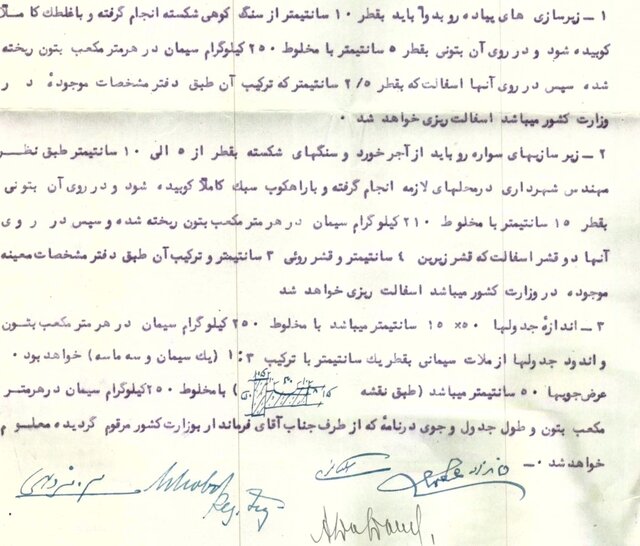 ۱ ــ زیرسازی های پیاده رو بدواً باید بقطر ۱۰ سانتیمتر از سنگ کوهی شکسته انجام گرفته و باغلطک کاملاً
کوبیده شود و در روی آن بتونی بقطر ۵ سانتیمتر با مخلوط ۲۵۰ کیلوگرم سیمان در هرمتر مکعب بتون ریخته
شده سپس در روی آنها اسفالت که بقطر ۲/۵ سانتیمتر که ترکیب آن طبق دفتر مشخصات موجوده در
وزارت کشور میباشد اسفالت ریزی خواهد شد ۰
۲ ــ زیر سازیهای سواره رو باید از آجر خورد و سنگهای شکسته بقطر از ۵ الی ۱۰ سانتیمتر طبق نظر
مهندس شهرداری درمحلهای لازمه انجام گرفته و باراهکوب سبک کاملاً کوبیده شود و در روی آن بتونی
بقطر ۱۵ سانتیمتر با مخلوط ۲۱۰ کیلوگرم سیمان در هر متر مکعب بتون ریخته شده و سپس در روی
آنها دو قشر اسفالت که قشر زیرین ۴ سانتیمتر و قشر روئی ۳ سانتیمتر و ترکیب آن طبق دفتر مشخصات معینه
موجوده در وزارت کشور میباشد اسفالت ریزی خواهد شد
۳ ــ اندازهٔ جدولها ۵۰×۱۵ سانتیمتر میباشد با مخلوط ۲۵۰ کیلوگرام سیمان در هر متر مکعب بتون
و اندود جدولها از ملات سیمانی بقطر یک سانتیمتر با ترکیب ۱:۳ (یک سیمان و سه ماسه) خواهد بود ۰
عرض جویها ۵۰ سانتیمتر میباشد (طبق نقشه ) با مخلوط ۲۵۰ کیلوگرام سیمان در هرمتر
مکعب بتون و طول جدول و جوی درنامهٔ که از طرف جناب آقای فرماندار بوزارت کشور مرقوم گردیده معلوم
خواهد شد ۰ــ